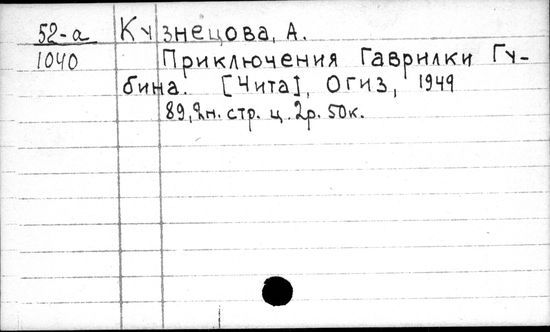 52-а Кузнецова, А.
1040 Приключения Гаврилки Гу-
бина. [Чита], Огиз, 1949
89, 2н. стр. ц. 2р. 50к.